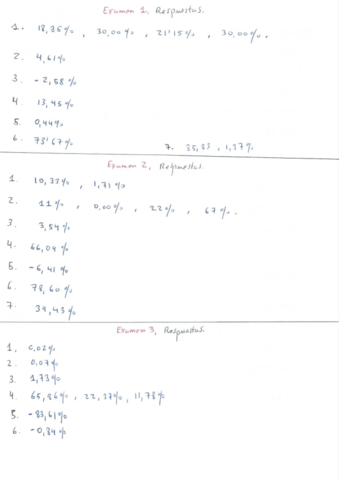 Examen 1, Respuestas.
1. 18,86% , 30,00% , 21'15% , 30,00%.
2. 4,61%
3. -2,58%
4. 13,45%
5. 0,44%
6. 73'67%
7. 35,83 , 1,37%
Examen 2, Respuestas.
1. 10,33% , 1,71%
2. 11% , 0,00% , 22% , 67%.
3. 3,54%
4. 66,04%
5. -6,41%
6. 78,60%
7. 34,43%
Examen 3, Respuestas.
1. 0,02%
2. 0,07%
3. 1,73%
4. 65,86% , 22,37% , 11,78%
5. -83,61%
6. -0,84%